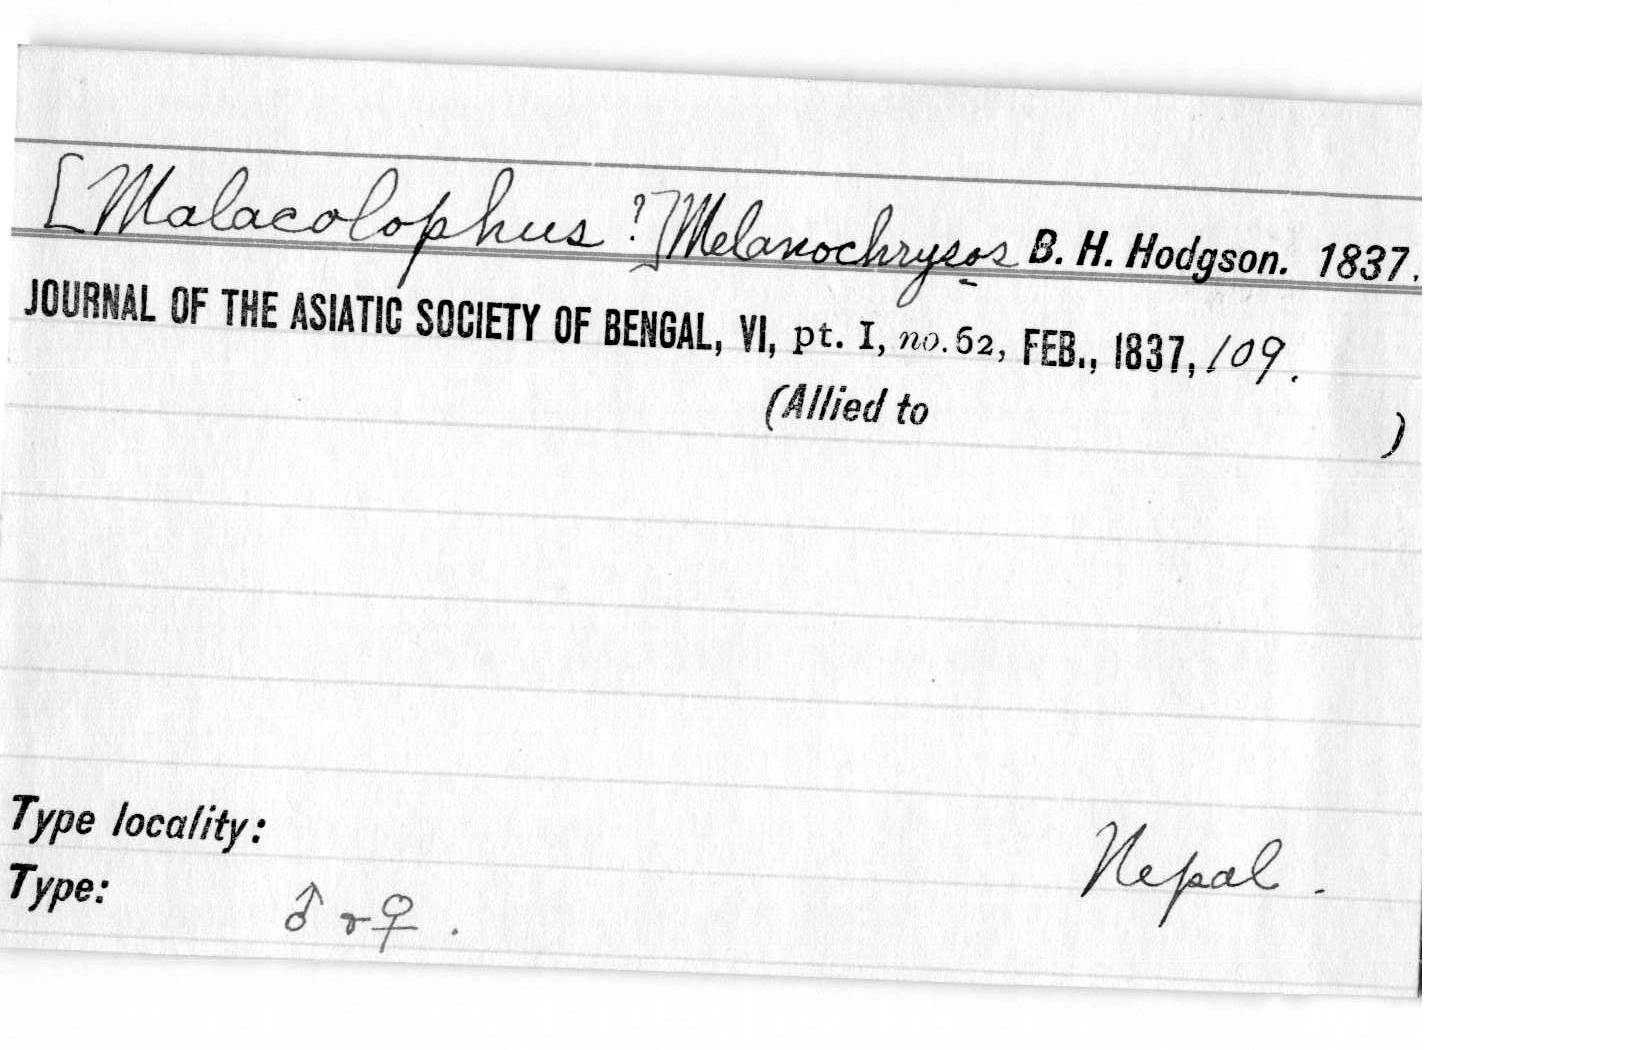 [Malacolophus ?] Melanochrysos B. H. Hodgson. 1837.
JOURNAL OF THE ASIATIC SOCIETY OF BENGAL, VI, pt. I, no. 62, FEB., 1837, 109.
(Allied to )
Type locality: Nepal.
Type: ♂ & ♀.